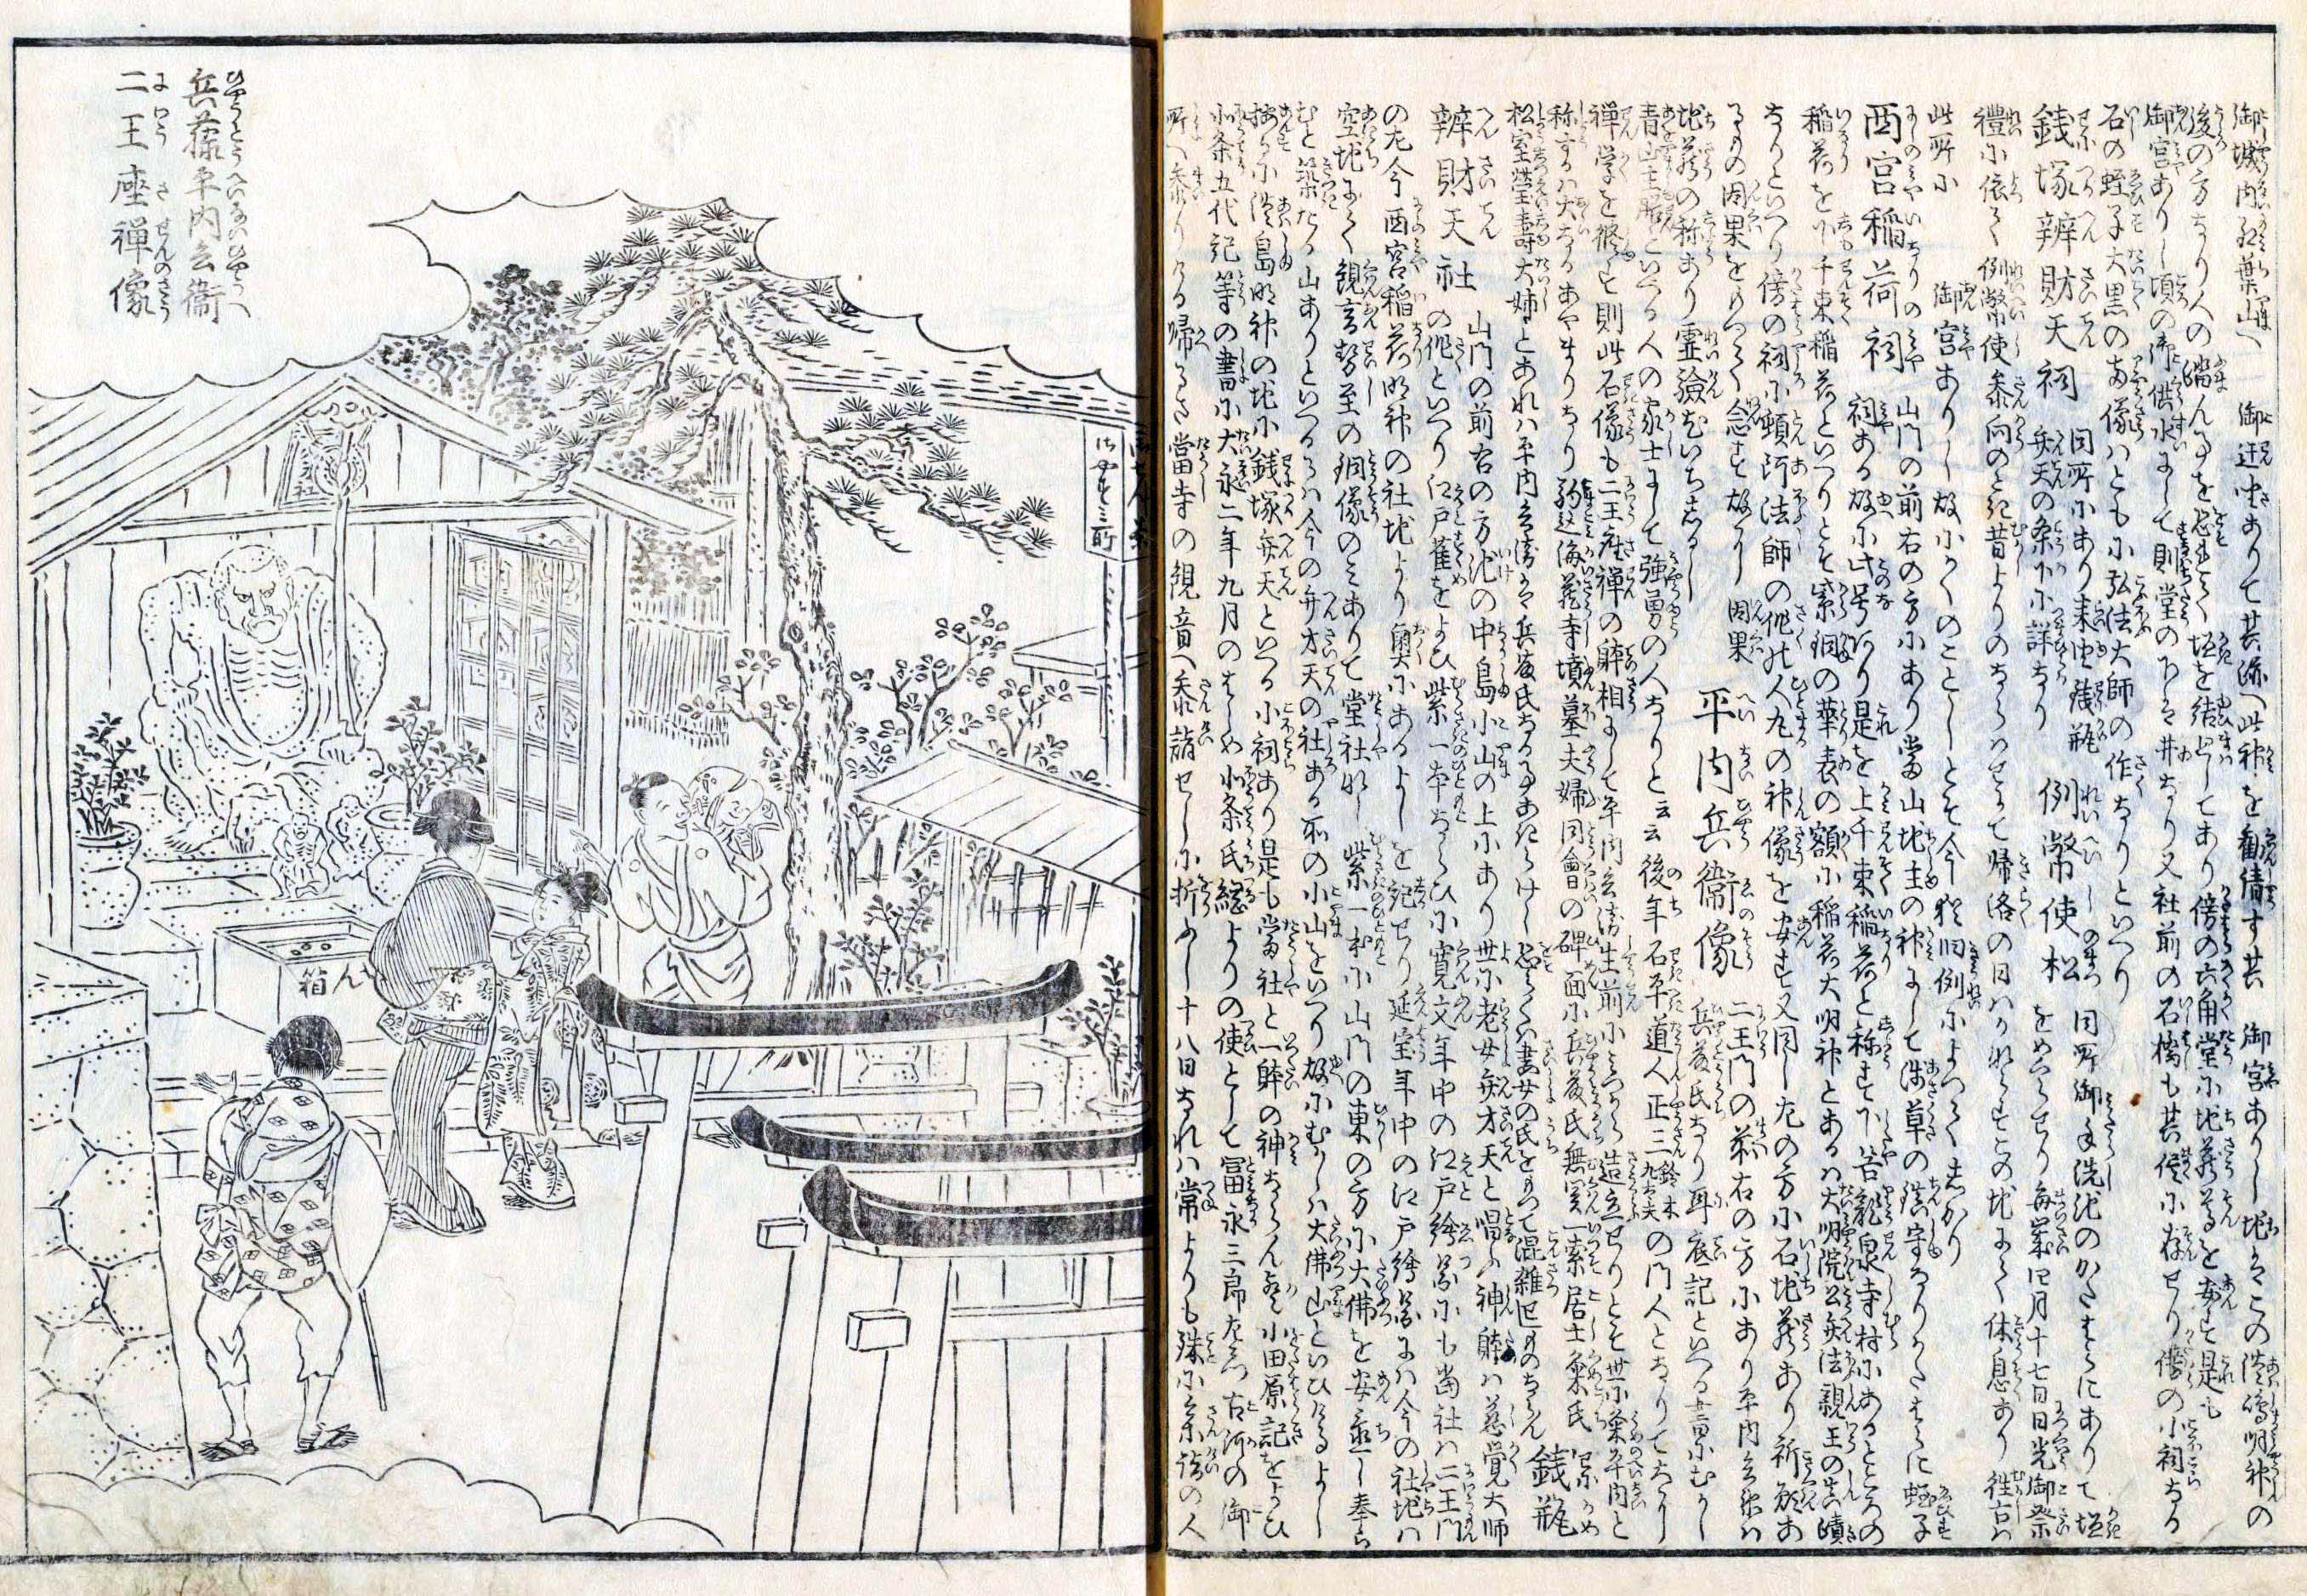 御城内紅葉山へ 御遷座ありて其跡へ此神を勧請す其 御宮ありし地はこの淡嶋明神の
後の方なり人の踏ん事を恐れて垣を結まはしてあり傍の六角堂に地蔵尊を安す是も
御宮ありし頃の御供水にして則堂の下は井なり又社前の石橋も其侭に存せり傍の小祠なる
石の蛭子大黒の両像はともに弘法大師の作なりといへり
銭塚辨財天祠 同所にあり 銭瓶 例幣使松 同所御手洗池のかたはらにありて垣
弁天の条下に詳なり をめくらせり毎歳四月十七日日光御祭
禮に依て例幣使参向のとき昔よりのならはせにて帰洛の日はかならすこの地にて休息あり往古は
此所に 御宮ありし故にかくのことしとそ今猶旧例によつてしかり
西宮稲荷祠 山門の前右の方にあり當山地主の神にして浅草の鎮守なりかたはらに蛭子
祠ある故に此号あり是を上千束稲荷と称す下谷龍泉寺村にあるところの
稲荷を下千束稲荷といへりとそ紫銅の華表の額に稲荷大明神とあるは大明院公弁法親王の真蹟
なりといへり傍の祠に頓阿法師の作の人丸の神像を安す又同し左の方に石地蔵あり祈願あ
るもの因果をめつて念す故に 因果
地蔵の称あり霊験尤いちしるし 平内兵衛像 二王門の前右の方にあり平内兵衛は
兵藤氏なり耳底記といへる書にむかし
青山主膳といへる人の家士にして強勇の人なりと云云後年石平道人正三 鈴木九太夫 の門人となりてもつはら
禅学を修す則此石像も二王座禅の躰相にして平内兵衛生前にみつから造立せりとそ世に粂平内と
称するは大なるあやまりなり 駒込海蔵寺墳墓夫婦同會の碑面に兵藤氏無関一素居士粂氏
松室瑩寿大姉とあれは平内兵衛は兵藤氏なる事あきらけし恐くは妻女の氏をもつて混雑せしものならん 銭瓶
辨財天社 山門の前右の方池の中島小山の上にあり世に老女弁才天と唱ふ神躰は慈覚大師
の作といへり江戸雀をよひ紫一本ならひに寛文年中の江戸絵図にも當社は二王門
の左今西宮稲荷明神の社地より奥にあるよしを記せり延宝年中の江戸絵図には今の社地は
空地にて観音勢至の銅像のみありて堂社なし紫一本に山門の東の方に大佛を安置し奉ら
むと築たる山ありといへるは今の弁才天の社ある所の小山をいへり故にむかしは大佛山といひけるよし
按るに淡島明神の地に銭塚弁天といへる小祠あり是も當社と一躰の神ならん歟小田原記をよひ
小条五代記等の書に大永二年九月のはしめ北条氏綱よりの使として冨永三郎左衛門古河の御
所へ参りける帰るさ當寺の観音へ参詣せしに折ふし十八日なれは常よりも殊に参詣の人
兵藤平内兵衛
二王座禅像
ひやうとうへいないひやうへ
にわうさせんのさう
箱